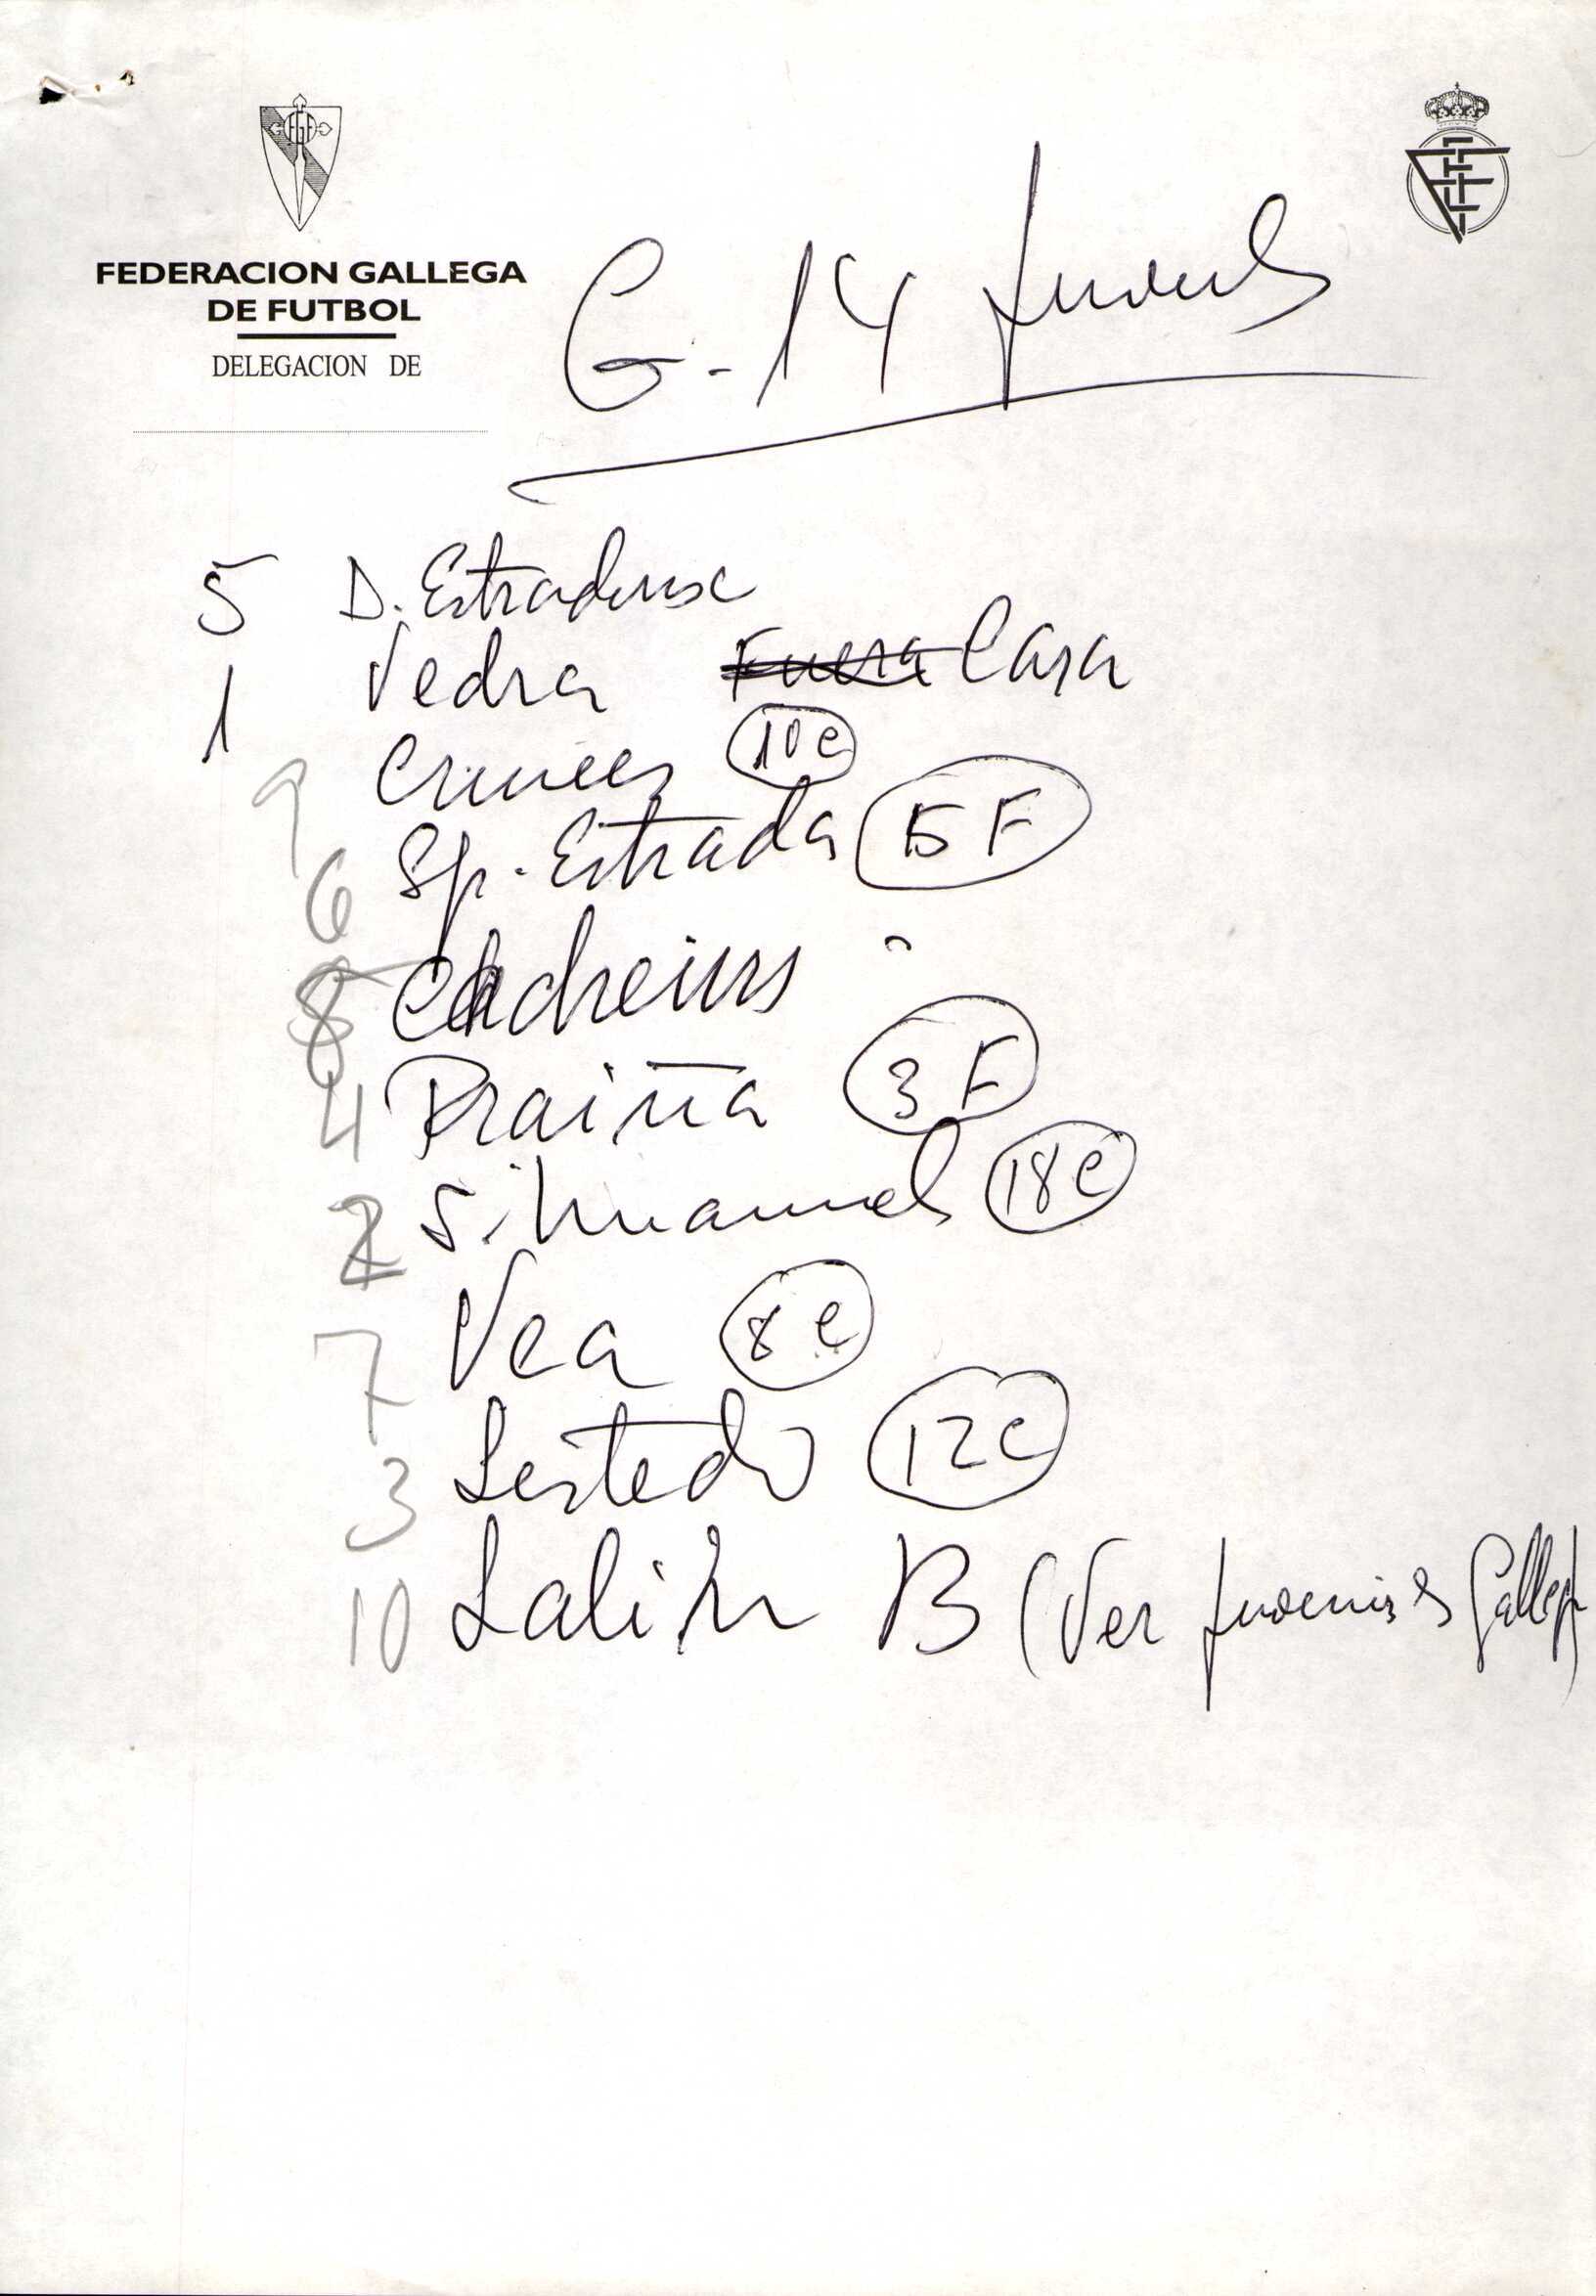 FEDERACION GALLEGA
DE FUTBOL
DELEGACION DE
G-14 Juvenil
5 D. Estradense
1 Vedra Fuera Casa
9 Cruces 10 C
6 Sp. Estrada 5 F
8 Codreiros
4 Praiña 3 F
2 S. Miguel 18 C
7 Vea 8 C
3 Lestedo 12 C
10 Lalín B (Ver juveniles Gallega)